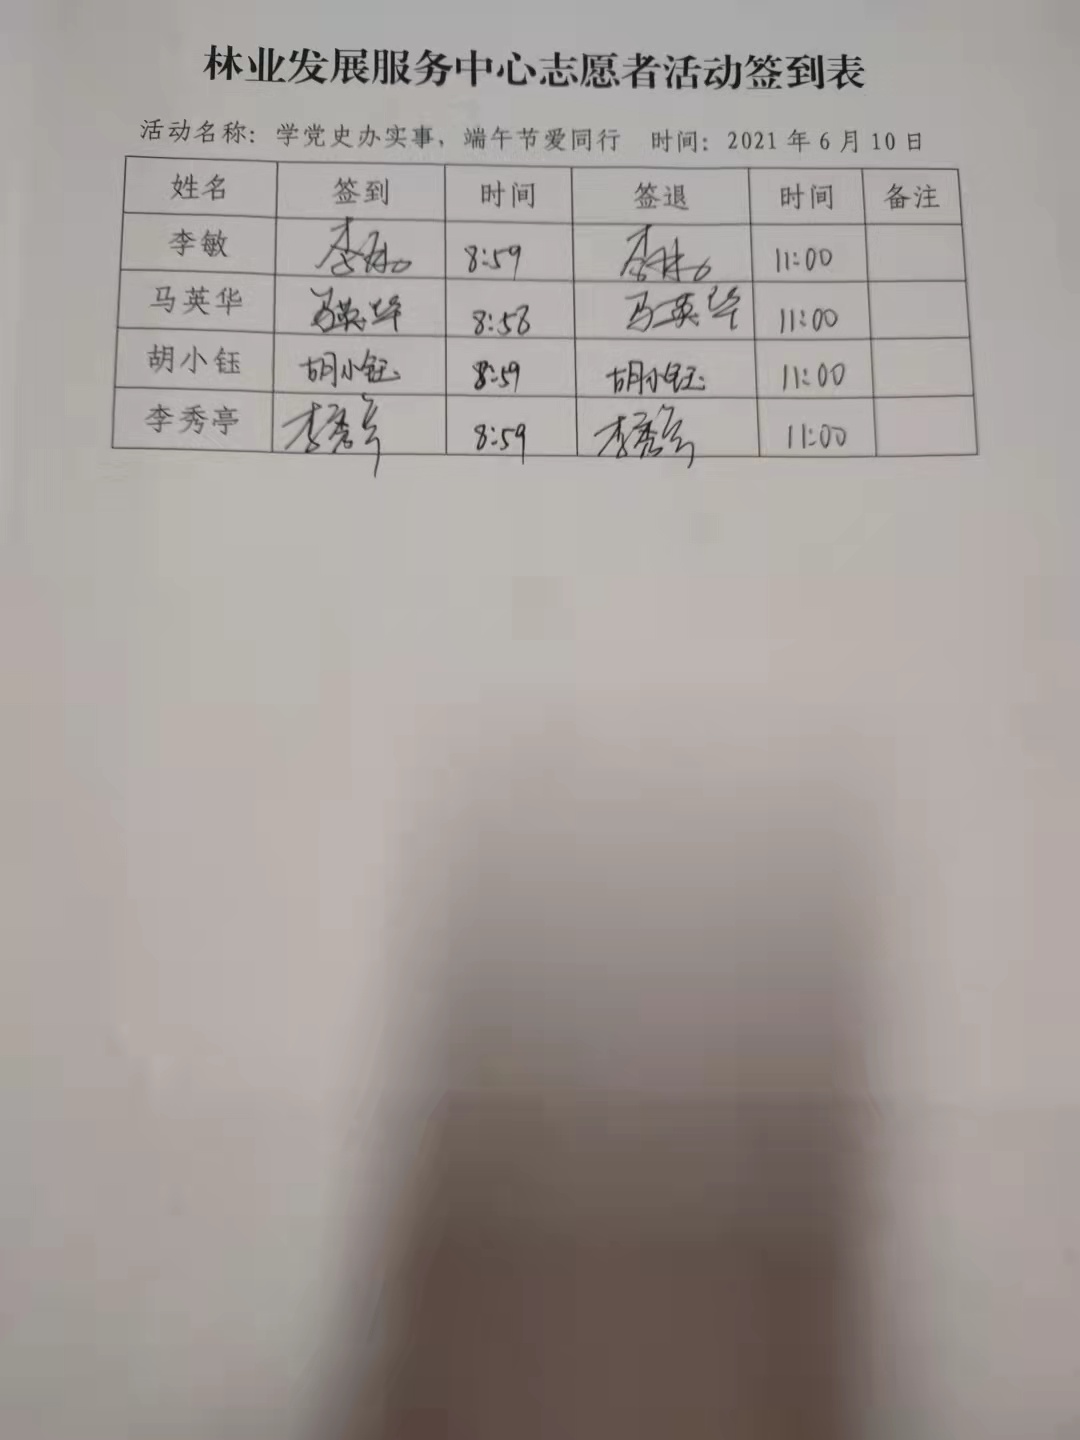 林业发展服务中心志愿者活动签到表
活动名称：学党史办实事，端午节爱同行 时间：2021年6月10日
姓名 签到 时间 签退 时间 备注
李敏 李敏 8:59 李敏 11:00
马英华 马英华 8:58 马英华 11:00
胡小钰 胡小钰 8:59 胡小钰 11:00
李秀亭 李秀亭 8:59 李秀亭 11:00